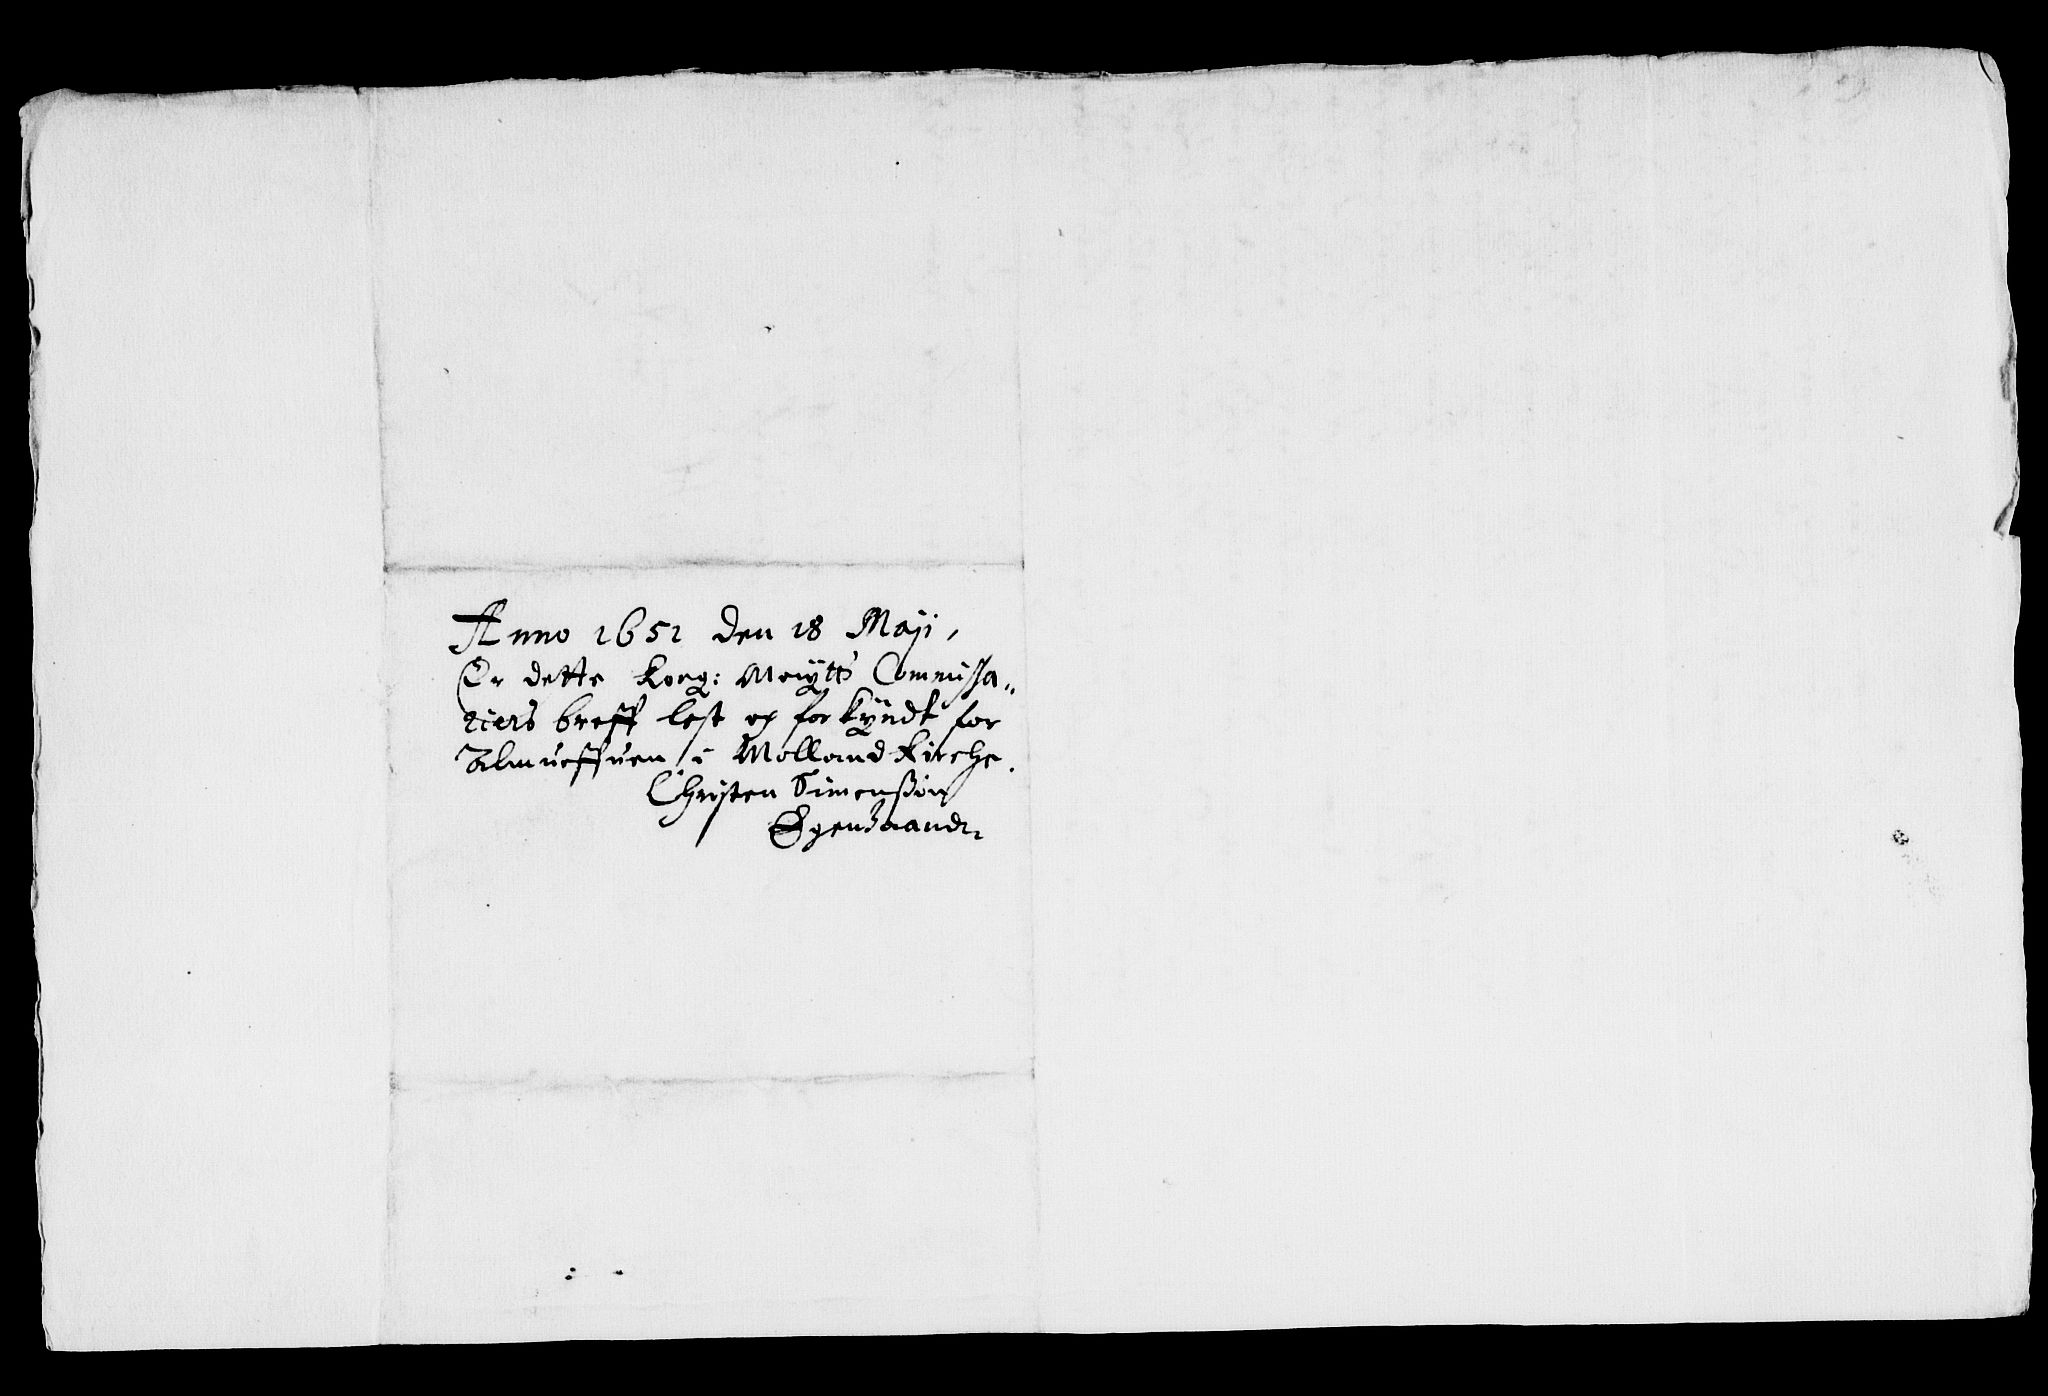 Anno 1651 den 18 Maji,
Er dette Kong: Mayttz Commissa„
riers breff lest og forkÿndt for
Almueffuen i Molland Kirche.
Christen Simenßøn
Egenhaand